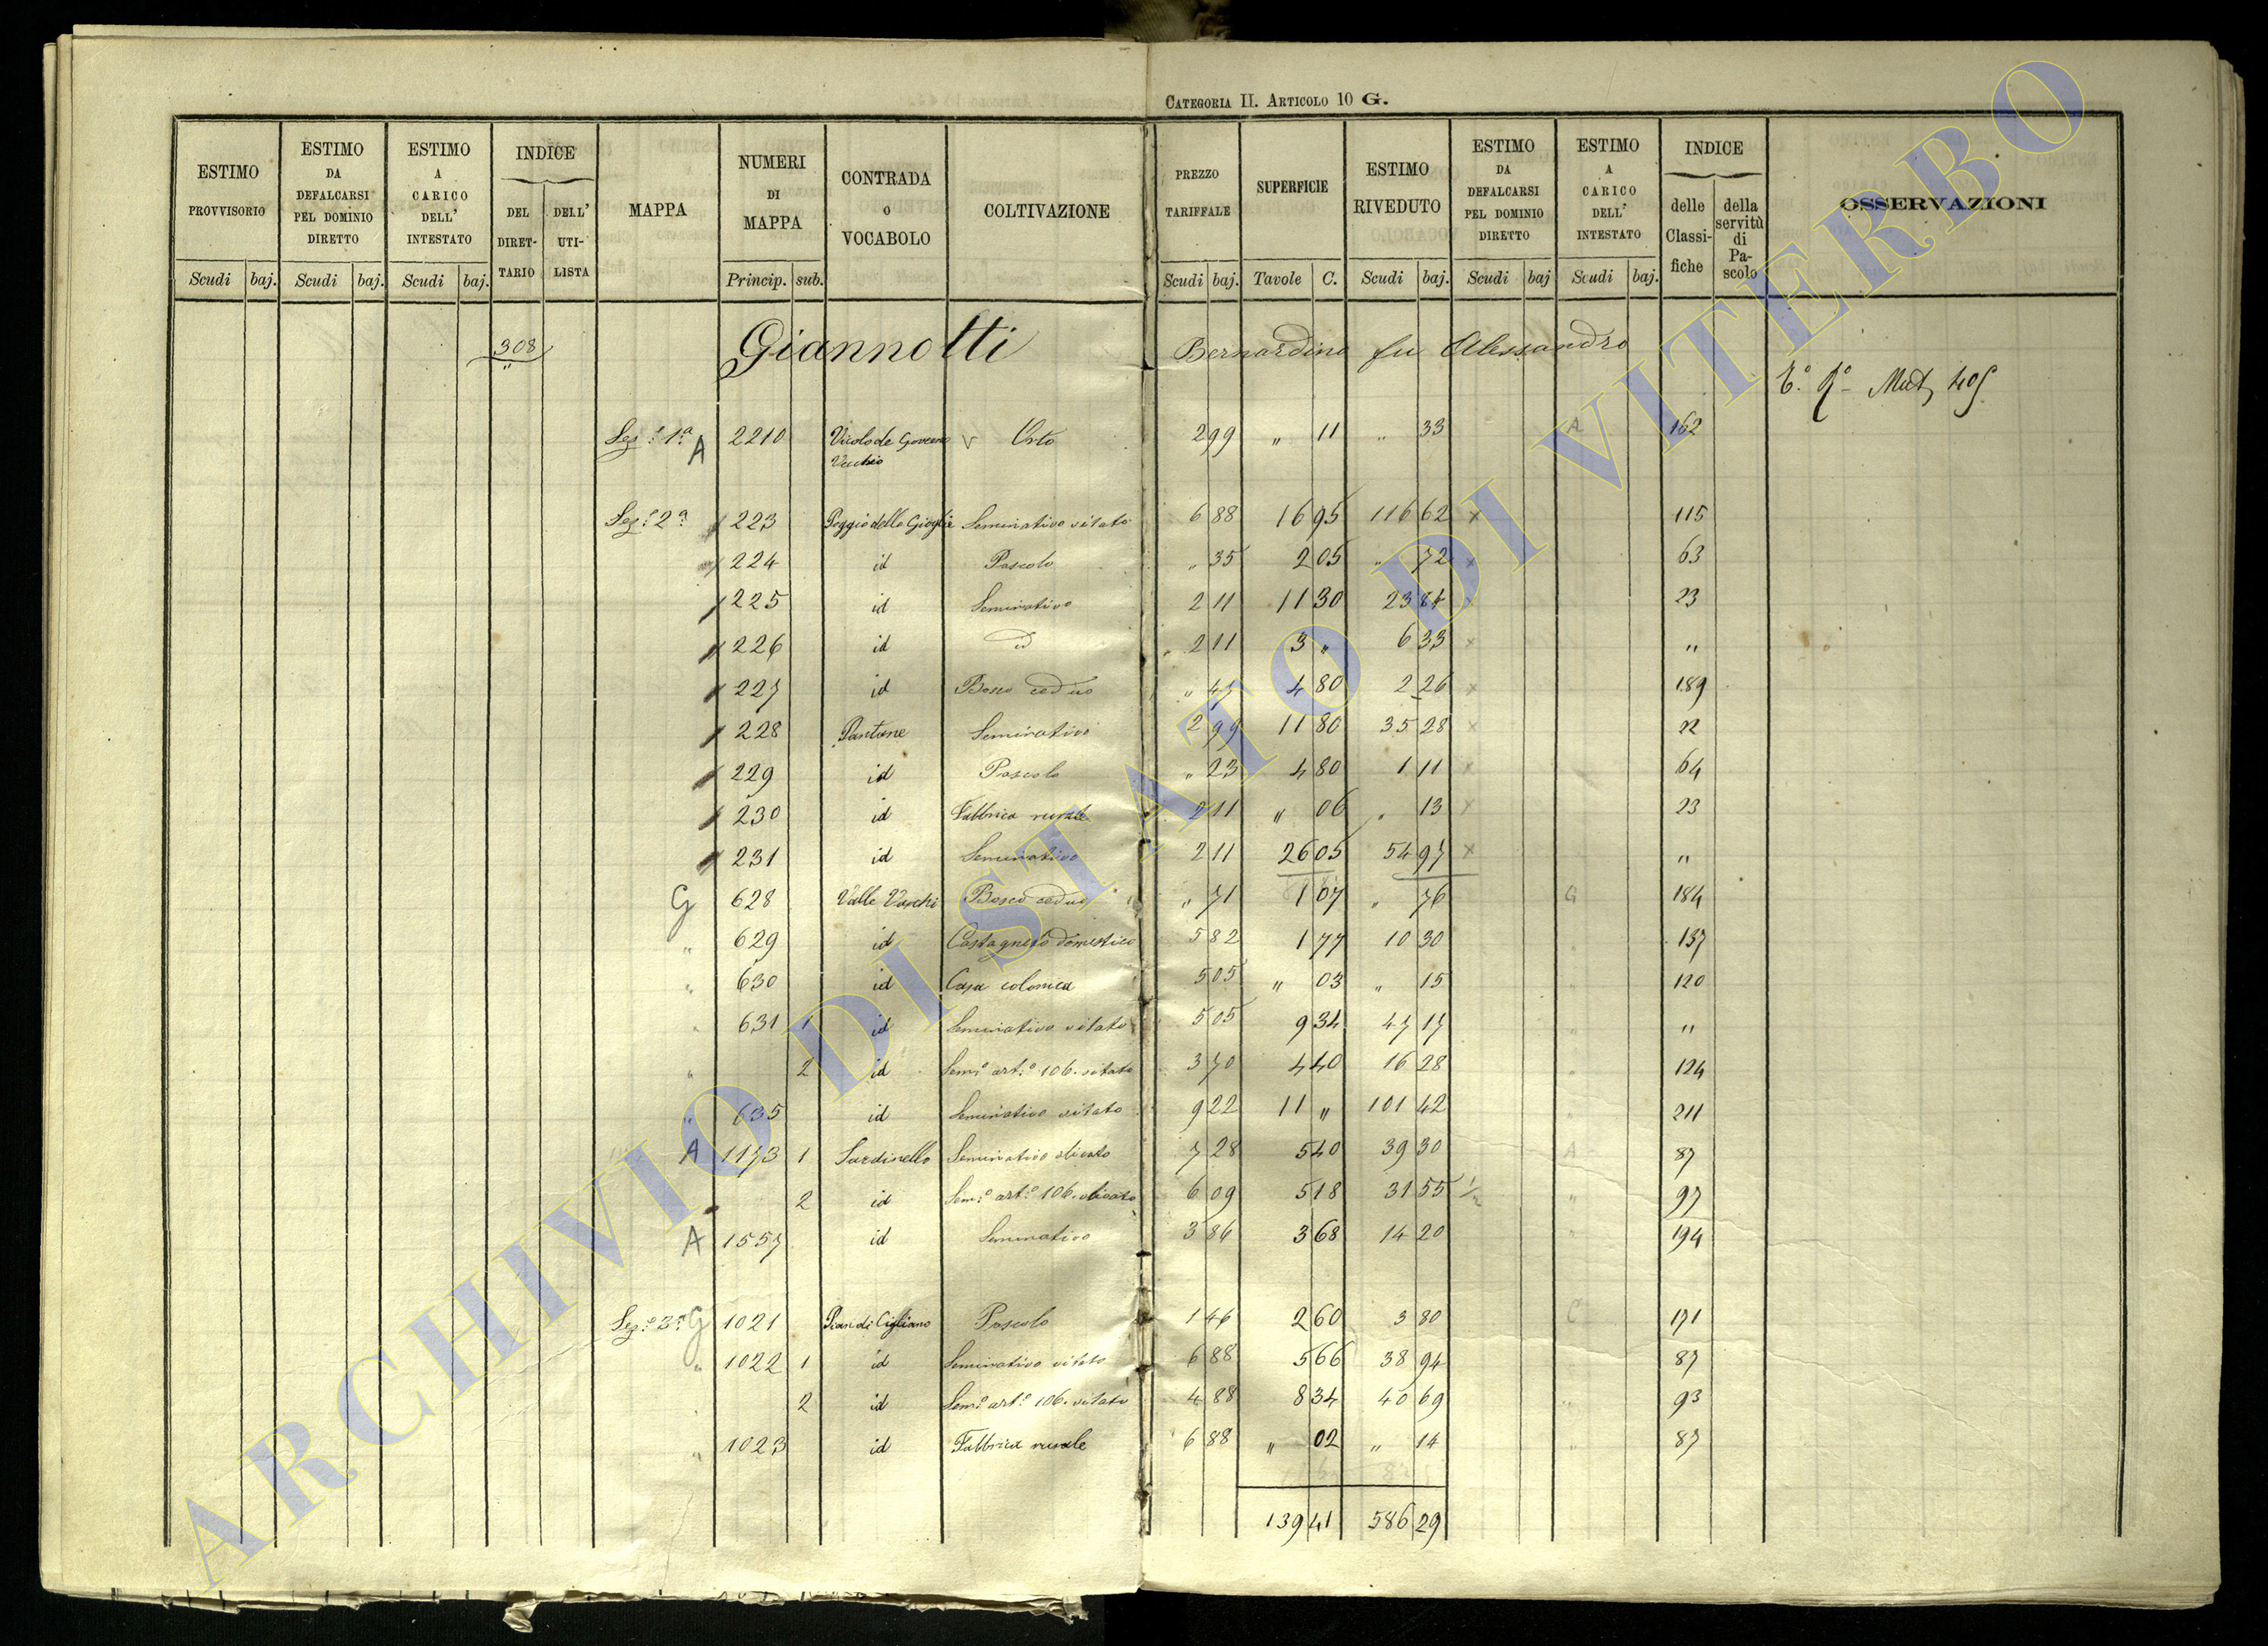 CATEGORIA II. ARTICOLO 10 G.
ESTIMO PROVVISORIO Scudi baj.
ESTIMO DA DEFALCARSI PEL DOMINIO DIRETTO Scudi baj.
ESTIMO A CARICO DELL' INTESTATO Scudi baj.
INDICE DEL DIRET-TARIO DELL' UTI-LISTA
MAPPA
NUMERI DI MAPPA Princip. sub.
CONTRADA O VOCABOLO
COLTIVAZIONE
PREZZO TARIFFALE Scudi baj.
SUPERFICIE Tavole C.
ESTIMO RIVEDUTO Scudi baj.
ESTIMO DA DEFALCARSI PEL DOMINIO DIRETTO Scudi baj
ESTIMO A CARICO DELL' INTESTATO Scudi baj.
INDICE delle Classi-fiche della servitù di Pa-scolo
OSSERVAZIONI
308 Giannotti Bernardino fu Alessandro
Sez.e 1a A 2210 Vicolo de Governo Vecchio Orto 2 99 " 11 " 33 A 162
Sez.e 2a 223 Seminativo vitato 6 88 16 95 116 62 x 115
224 id Pascolo " 35 2 05 " 72 x 63
225 id Seminativo 2 11 11 30 23 84 x 23
226 id id 2 11 3 " 6 33 x "
227 id Bosco ceduo " 47 4 80 2 26 x 189
228 Pantane Seminativo 2 99 11 80 35 28 x 22
229 id Pascolo " 23 4 80 1 11 x 64
230 id Fabbrica rurale 2 11 " 06 " 13 x 23
231 id Seminativo 2 11 26 05 54 97 x "
G 628 Valle Vaschi Bosco ceduo " 71 1 07 " 76 G 184
" 629 id Castagneto domestico 5 82 1 77 10 30 137
" 630 id Casa colonica 5 05 " 03 " 15 120
" 631 1 id Seminativo vitato 5 05 9 34 47 17 "
" 2 id Sem.o art.o 106. vitato 3 70 4 40 16 28 124
" 635 id Seminativo vitato 9 22 11 " 101 42 211
A 1173 1 Sardinello Seminativo olivato 7 28 5 40 39 30 A 87
2 id Sem.o art.o 106. olivato 6 09 5 18 31 55 1/2 " 97
A 1557 id Seminativo 3 86 3 68 14 20 " 194
Sez.e 3a G 1021 Pian di Cigliano Pascolo 1 46 2 60 3 80 171
" 1022 1 id Seminativo vitato 6 88 5 66 38 94 87
2 id Sem.o art.o 106. vitato 4 88 8 34 40 69 " 93
" 1023 id Fabbrica rurale 6 88 " 02 " 14 " 87
139 41 586 29
ARCHIVIO DI STATO DI VITERBO